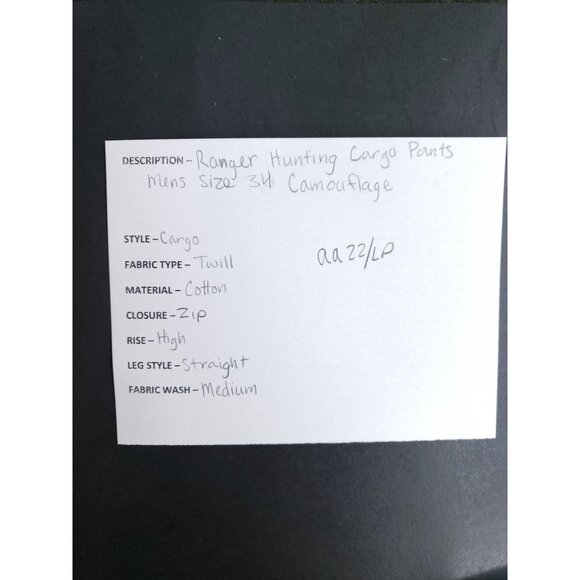 DESCRIPTION - Ranger Hunting Cargo Pants
Mens Size 34 Camouflage
STYLE - Cargo
FABRIC TYPE - Twill
aa22/LP
MATERIAL - Cotton
CLOSURE - Zip
RISE - High
LEG STYLE - Straight
FABRIC WASH - Medium